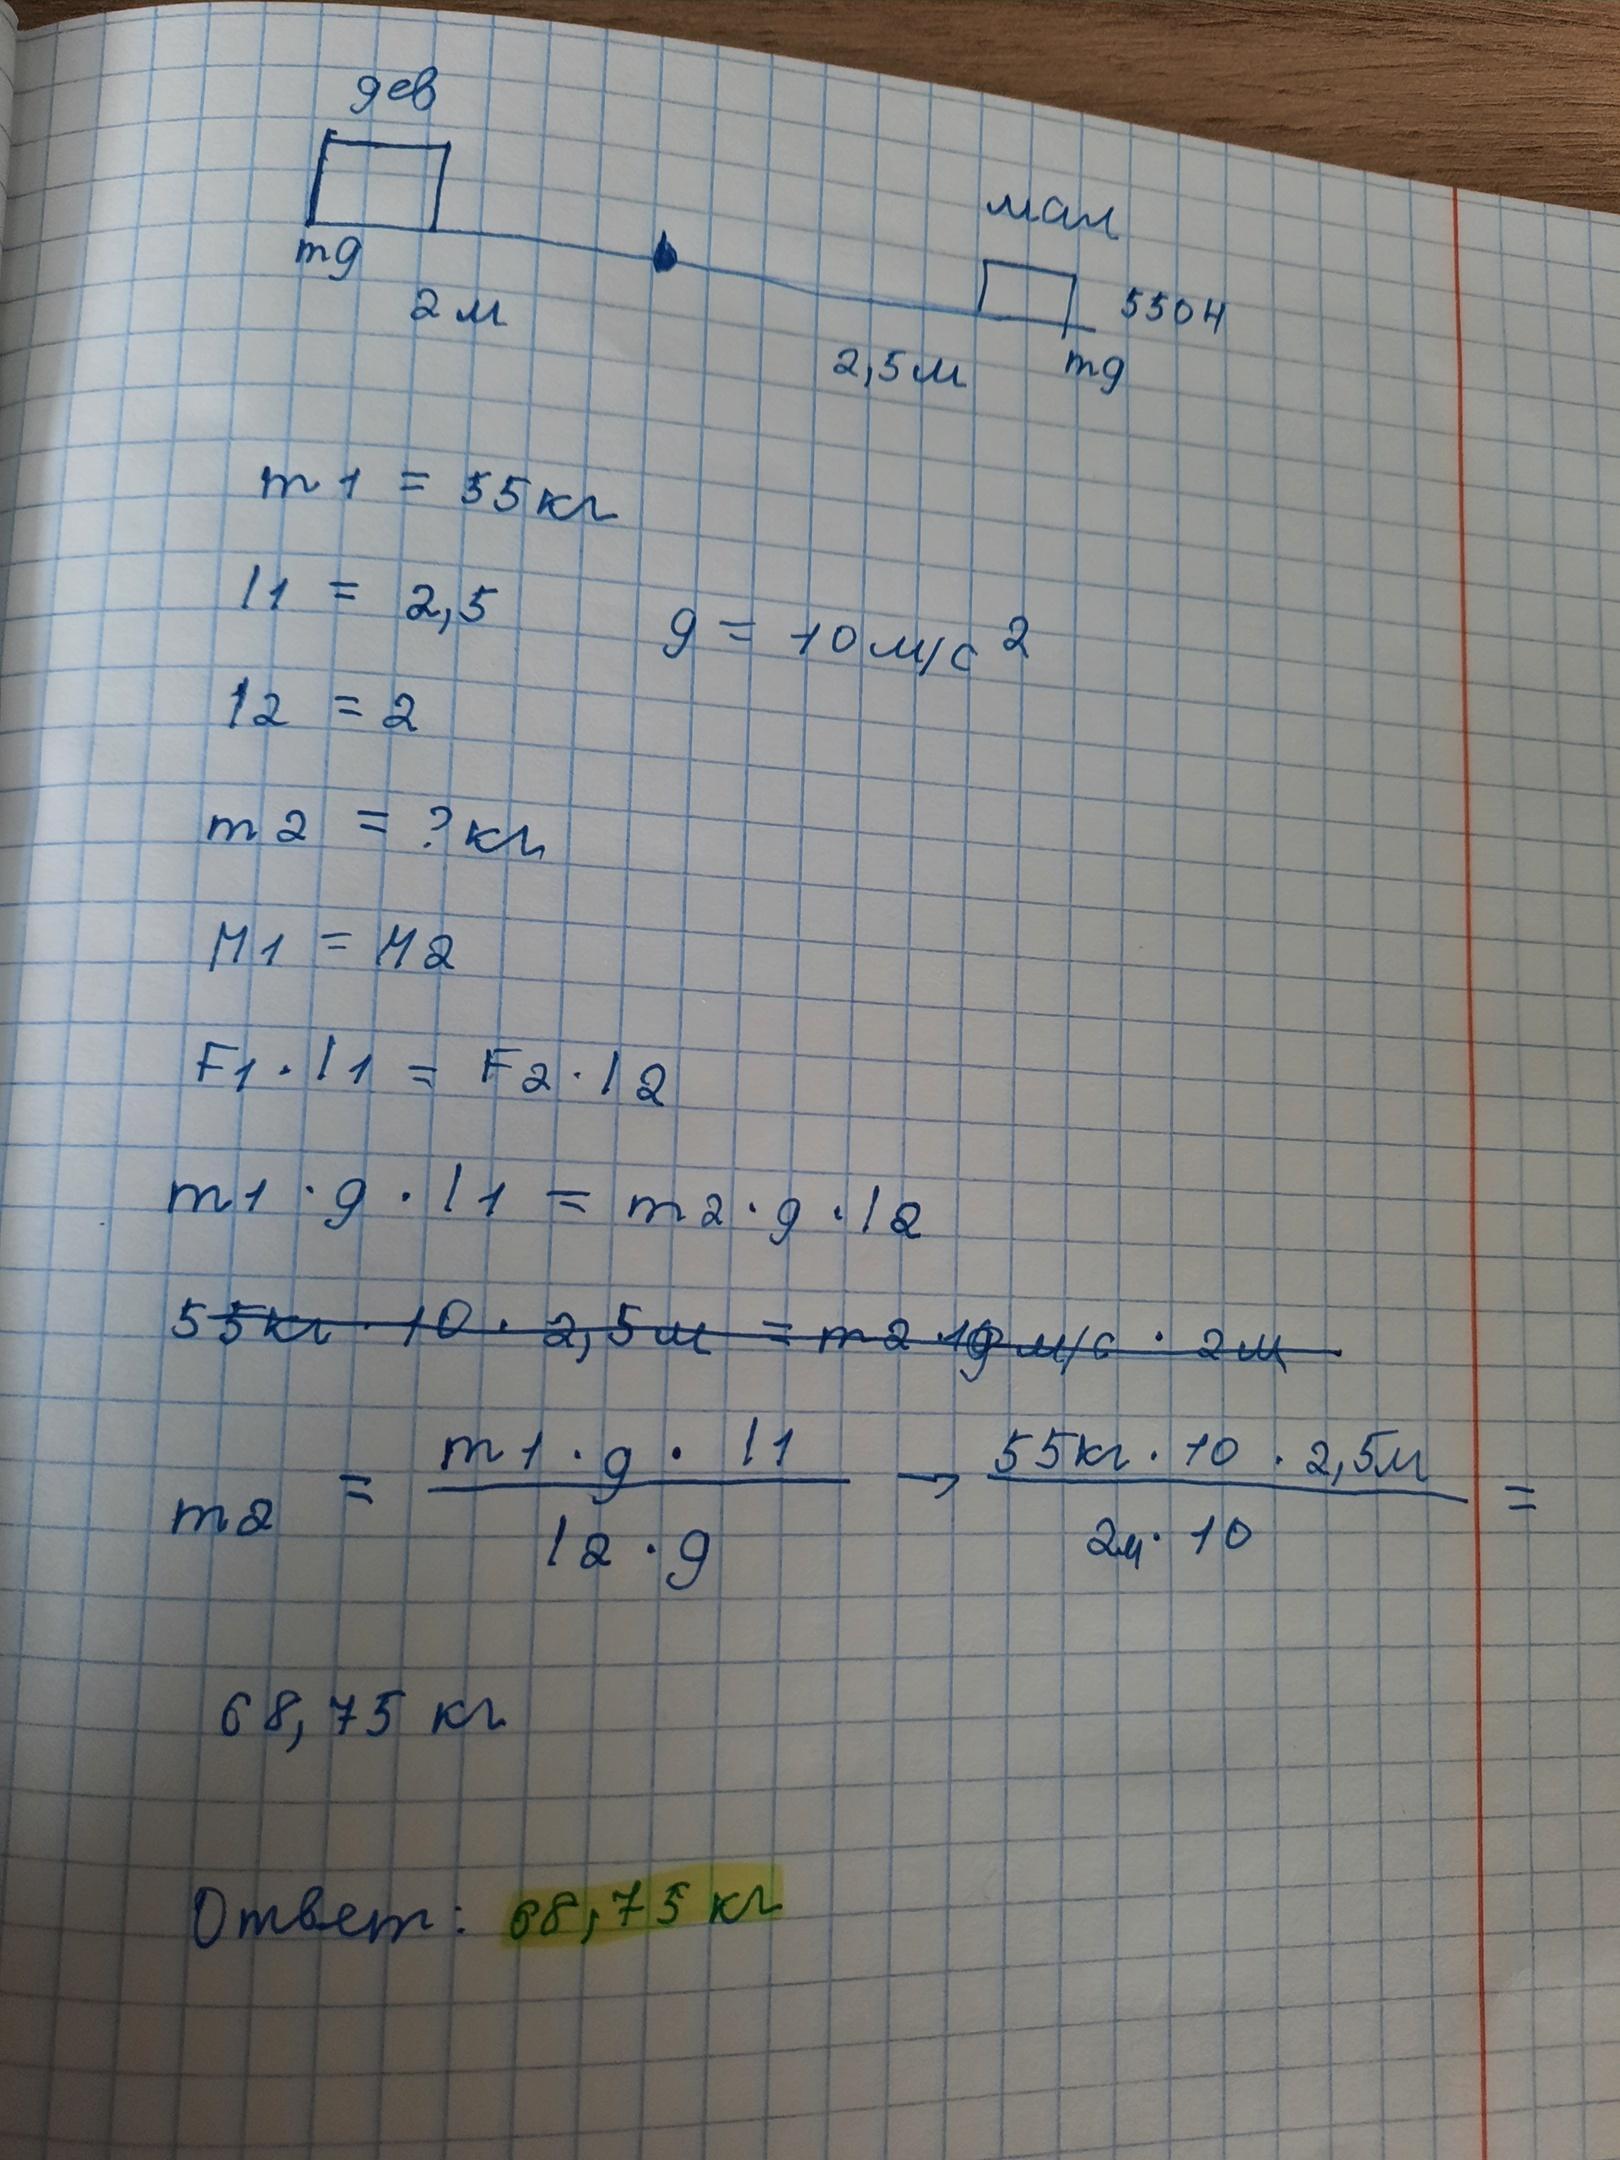 дев
мал
mg
550Н
2 м
2,5м
mg
m1 = 55кг
l1 = 2,5
g = 10м/с²
l2 = 2
m2 = ?кг
M1 = M2
F1 · l1 = F2 · l2
m1 · g · l1 = m2 · g · l2
55кг · 10 · 2,5м = m2 · 10 м/с · 2м
m2 = m1 · g · l1 / l2 · g → 55кг · 10 · 2,5м / 2м · 10 =
68,75 кг
Ответ: 68,75 кг